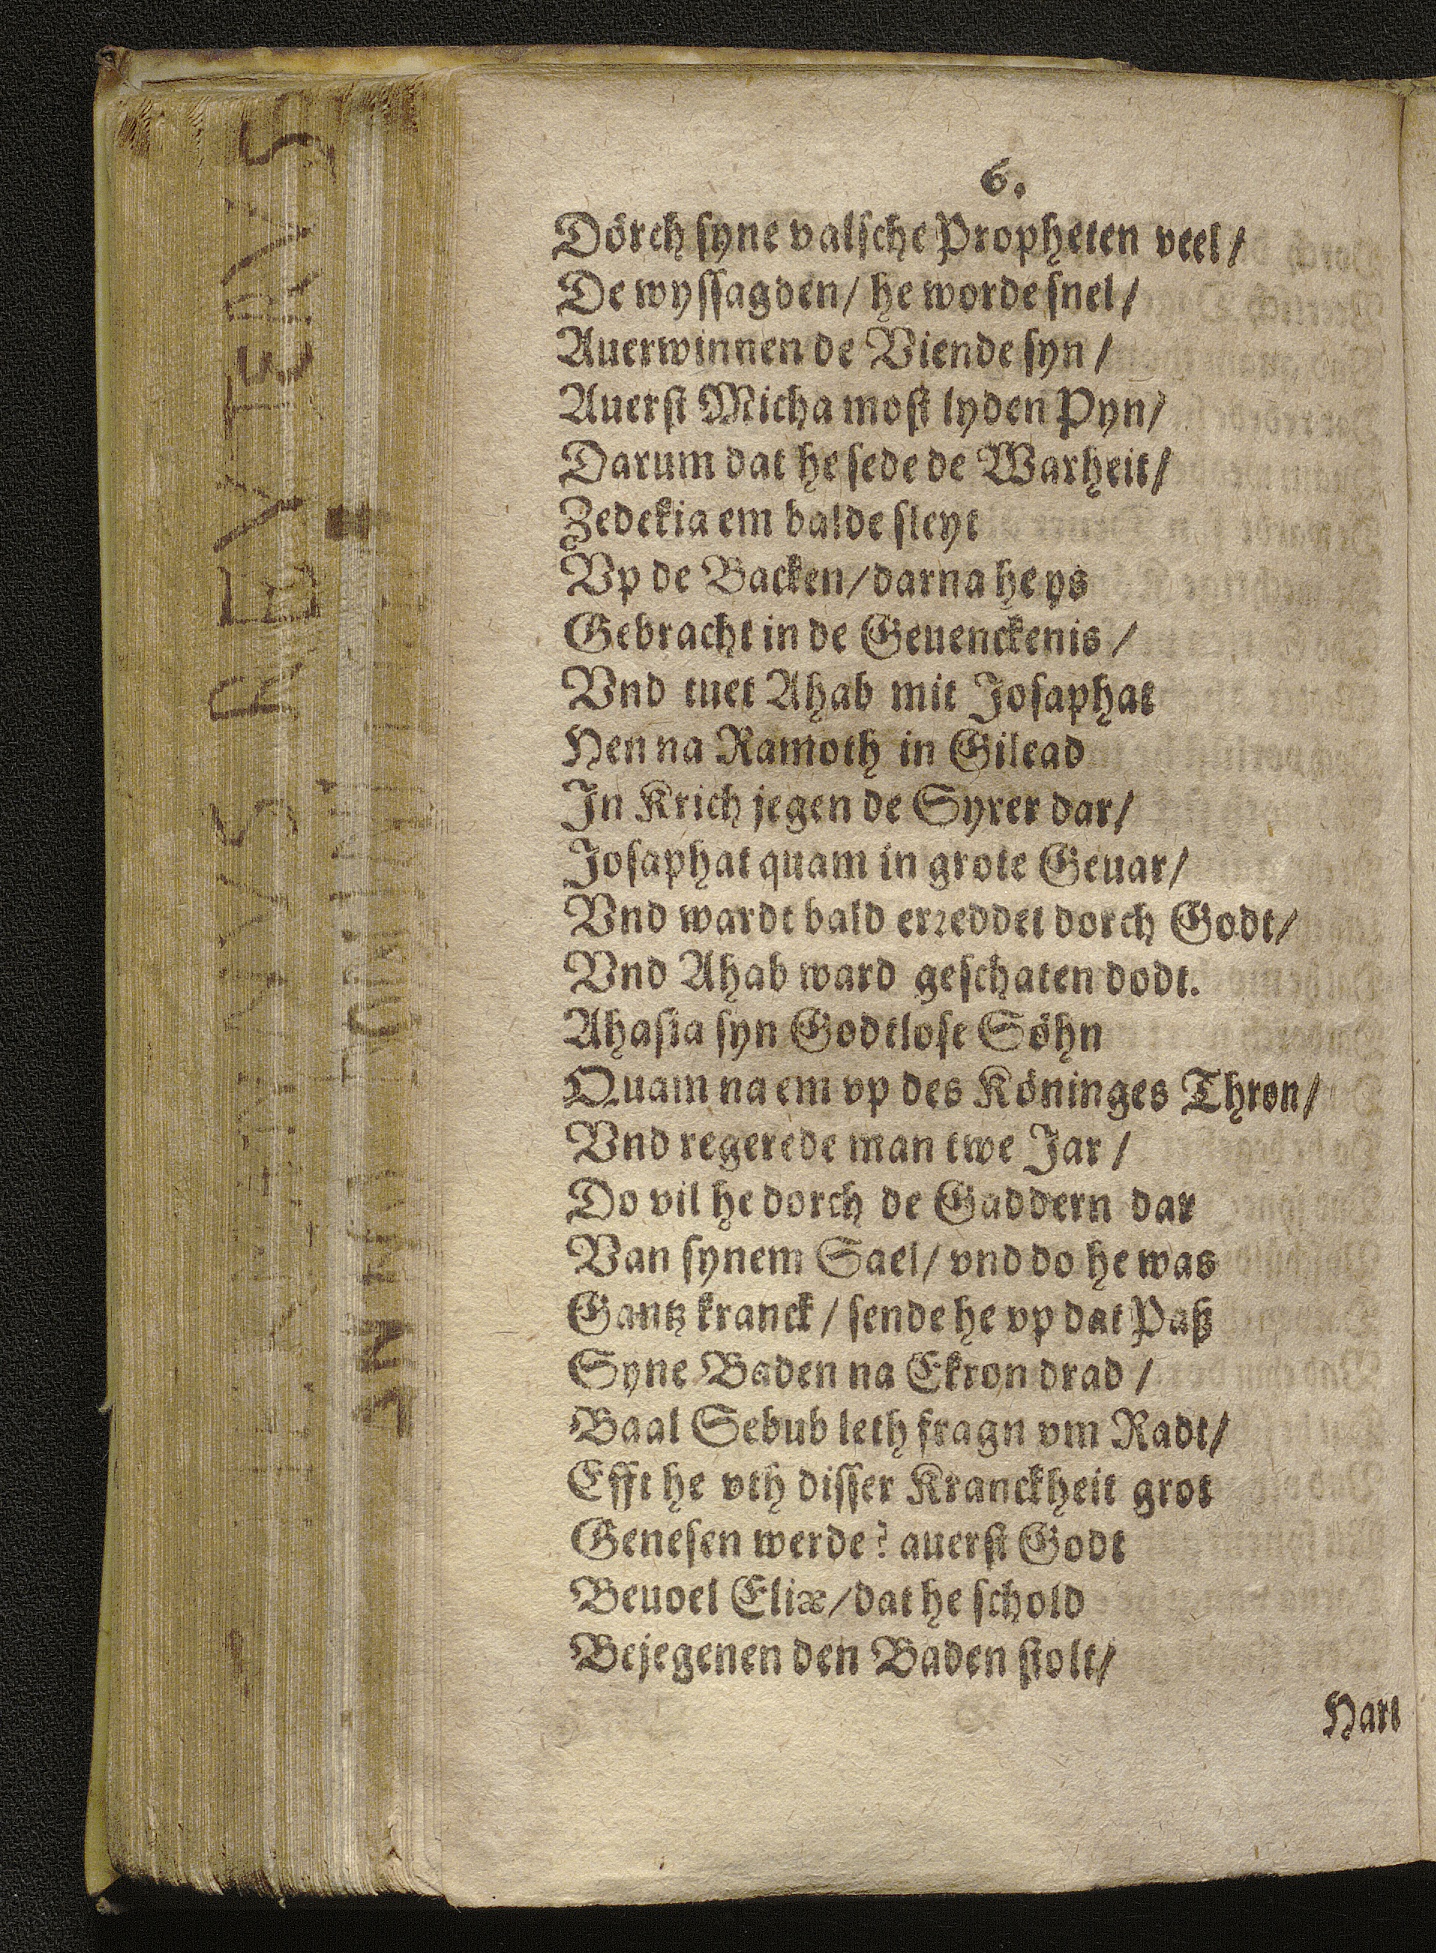 6.
Dörch syne valsche Propheten veel /
De wyssagden / he worde snel /
Auerwinnen de Viende syn /
Auerst Micha most lyden Pyn /
Darum dat he sede de Warheit /
Zedekia em balde sleyt
Vp de Backen / darna he ys
Gebracht in de Geuenckenis /
Vnd tuet Ahab mit Josaphat
Hen na Ramoth in Gilead
In Krich jegen de Syrer dar /
Josaphat quam in grote Geuar /
Vnd wardt bald erreddet dorch Godt /
Vnd Ahab ward geschaten dodt.
Ahasia syn Godtlose Söhn
Quam na em vp des Köninges Thron /
Vnd regerede man twe Jar /
Do vil he dorch de Gaddern dar
Van synem Sael / vnd do he was
Gantz kranck / sende he vp dat Paß
Syne Baden na Ekron drad /
Baal Sebub leth fragn vm Radt /
Efft he vth disser Kranckheit grot
Genesen werde? auerst Godt
Beuoel Eliæ / dat he schold
Bejegenen den Baden stolt /
Hart